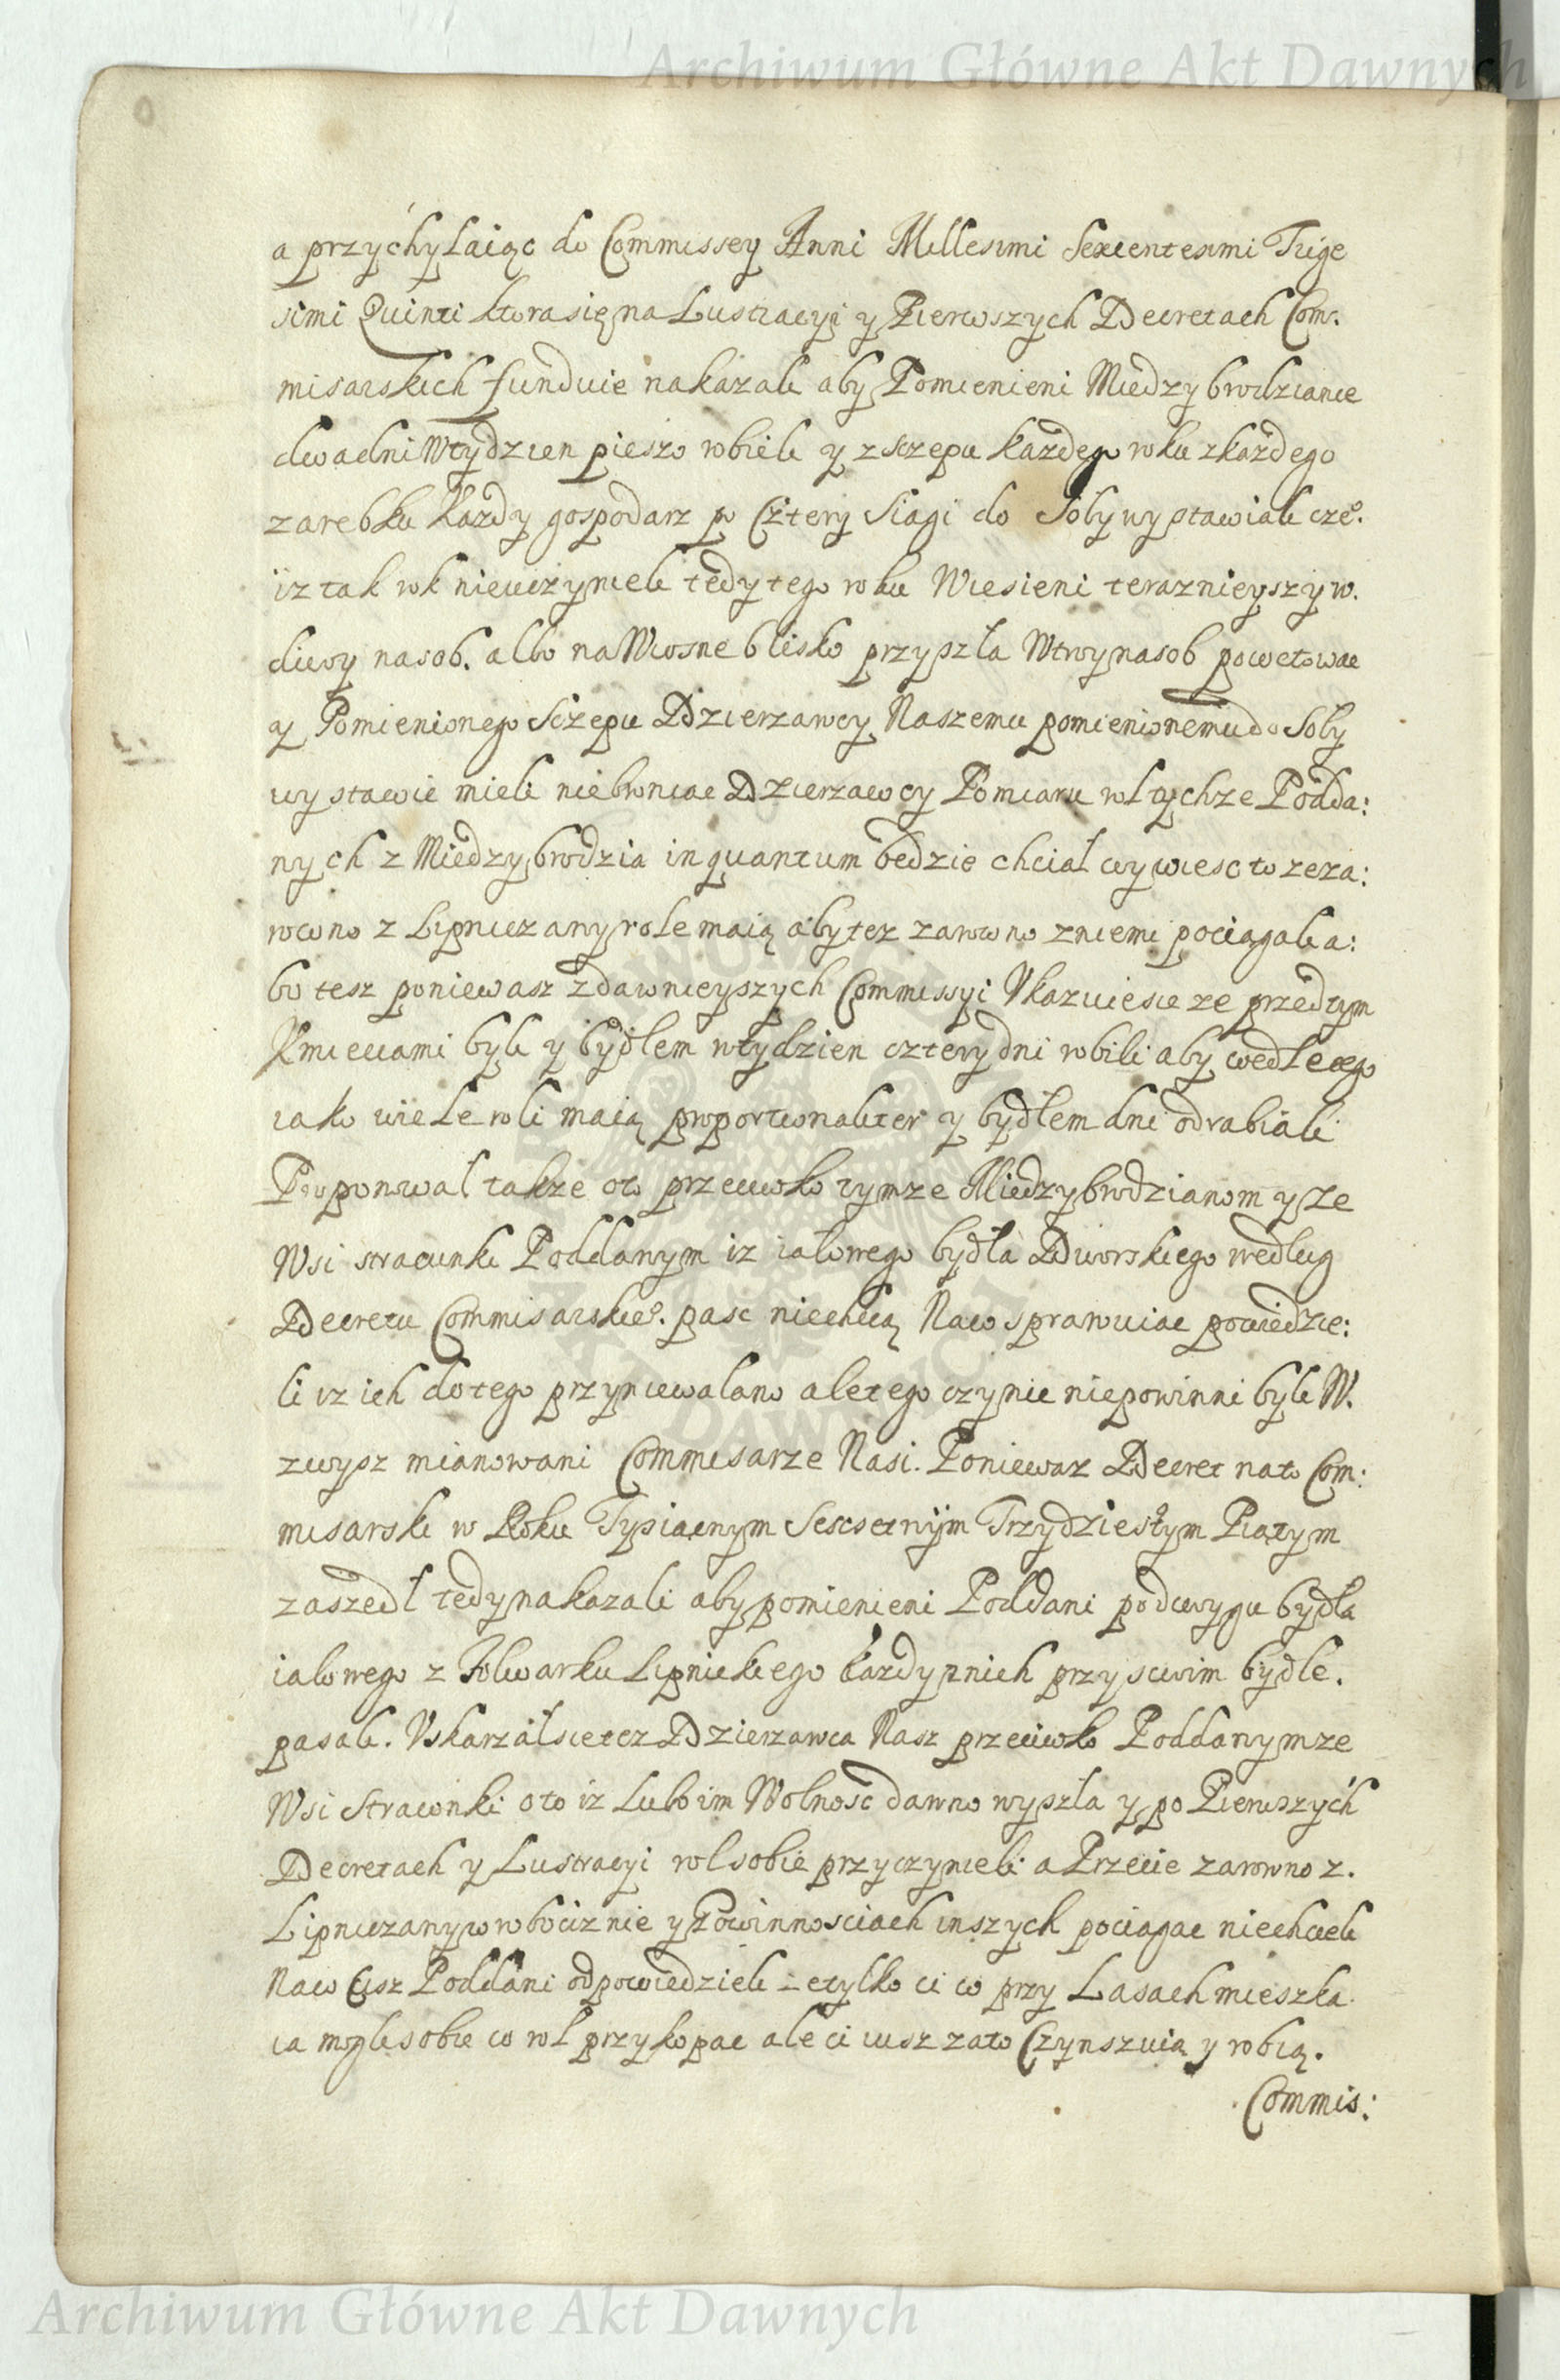 Archiwum Główne Akt Dawnych
a przychylaiąc do Commissey Anni Millesimi Sexcentesimi Trige
simi Quinti ktora się na Lustracyi y Pierwszych Decretach Com:
misarskich funduie nakazali aby Pomienieni Miedzybrodziance
dwa dni W tydzien pieszo robieli y z sczepu kazdego roku z kazdego
zarebku kazdy gospodarz po Cztery Siagi do Soby wystawiali cze°.
iz tak rok nieuczynieli tedy tego roku W iesieni teraznieyszy w.
dwoy nasob. albo na Wiosne blisko przyszła W troy nasob powetowac
y Pomienionego Sczepu Dzierzawcy Naszemu pomienionemu do Soby
wystawic mieli niebroniac Dzierzawcy Pomiaru rol tychze Podda:
nych z Miedzybrodzia in quantum bedzie chciał wywiesc to ze za:
rowno z Lipniczany role maią aby tez zarowno z niemi pociagali a:
bo tesz poniewasz z dawnieyszych Commissyi Vkazuie sie ze przed tym
Kmieciami byli y bydłem w tydzien cztery dni robili aby wedle tego
iako wiele roli maią proportionaliter y bydłem dni odrabiali
Proponował takze oto przeciwko tymze Miedzybrodzianom y ze
Wsi stracunki Poddanym iz iałowego bydła Dworskiego według
Decretu Commisarskie°. pasc niechcią Na co sprawuiac powiedzie:
li iz ich do tego przyniewalano ale tego czynic niepowinni byli W.
zwysz mianowani Commisarze Nasi. Poniewaz Decret na to Com:
misarski w Roku Tysiacnym Sescsetnÿm Trzydziestym Piatym
zaszedł tedy nakazali aby pomienieni Poddani podwoygu bydła
iałowego z Folwarku Lipnickiego kazdy z nich przy swoim bydle.
pasali. Vskarzał sie tez Dzierzawca Nasz przeciwko Poddanym ze
Wsi Straconki oto iz Lubo im Wolnosc dawno wyszła y po Pierwszych
Decretach y Lustracyi rol sobie przyczynieli a Przecie zarowno z.
Lipniczany w robociznie y Powinnosciach inszych pociagac niechcieli
Na co Cisz Poddani odpowiedzieli ze tylko ci co przy Lasach mieszka
ia mogli sobie co rol przykopac ale ci iusz za to Czynszuią y robią.
Commis:
Archiwum Główne Akt Dawnych